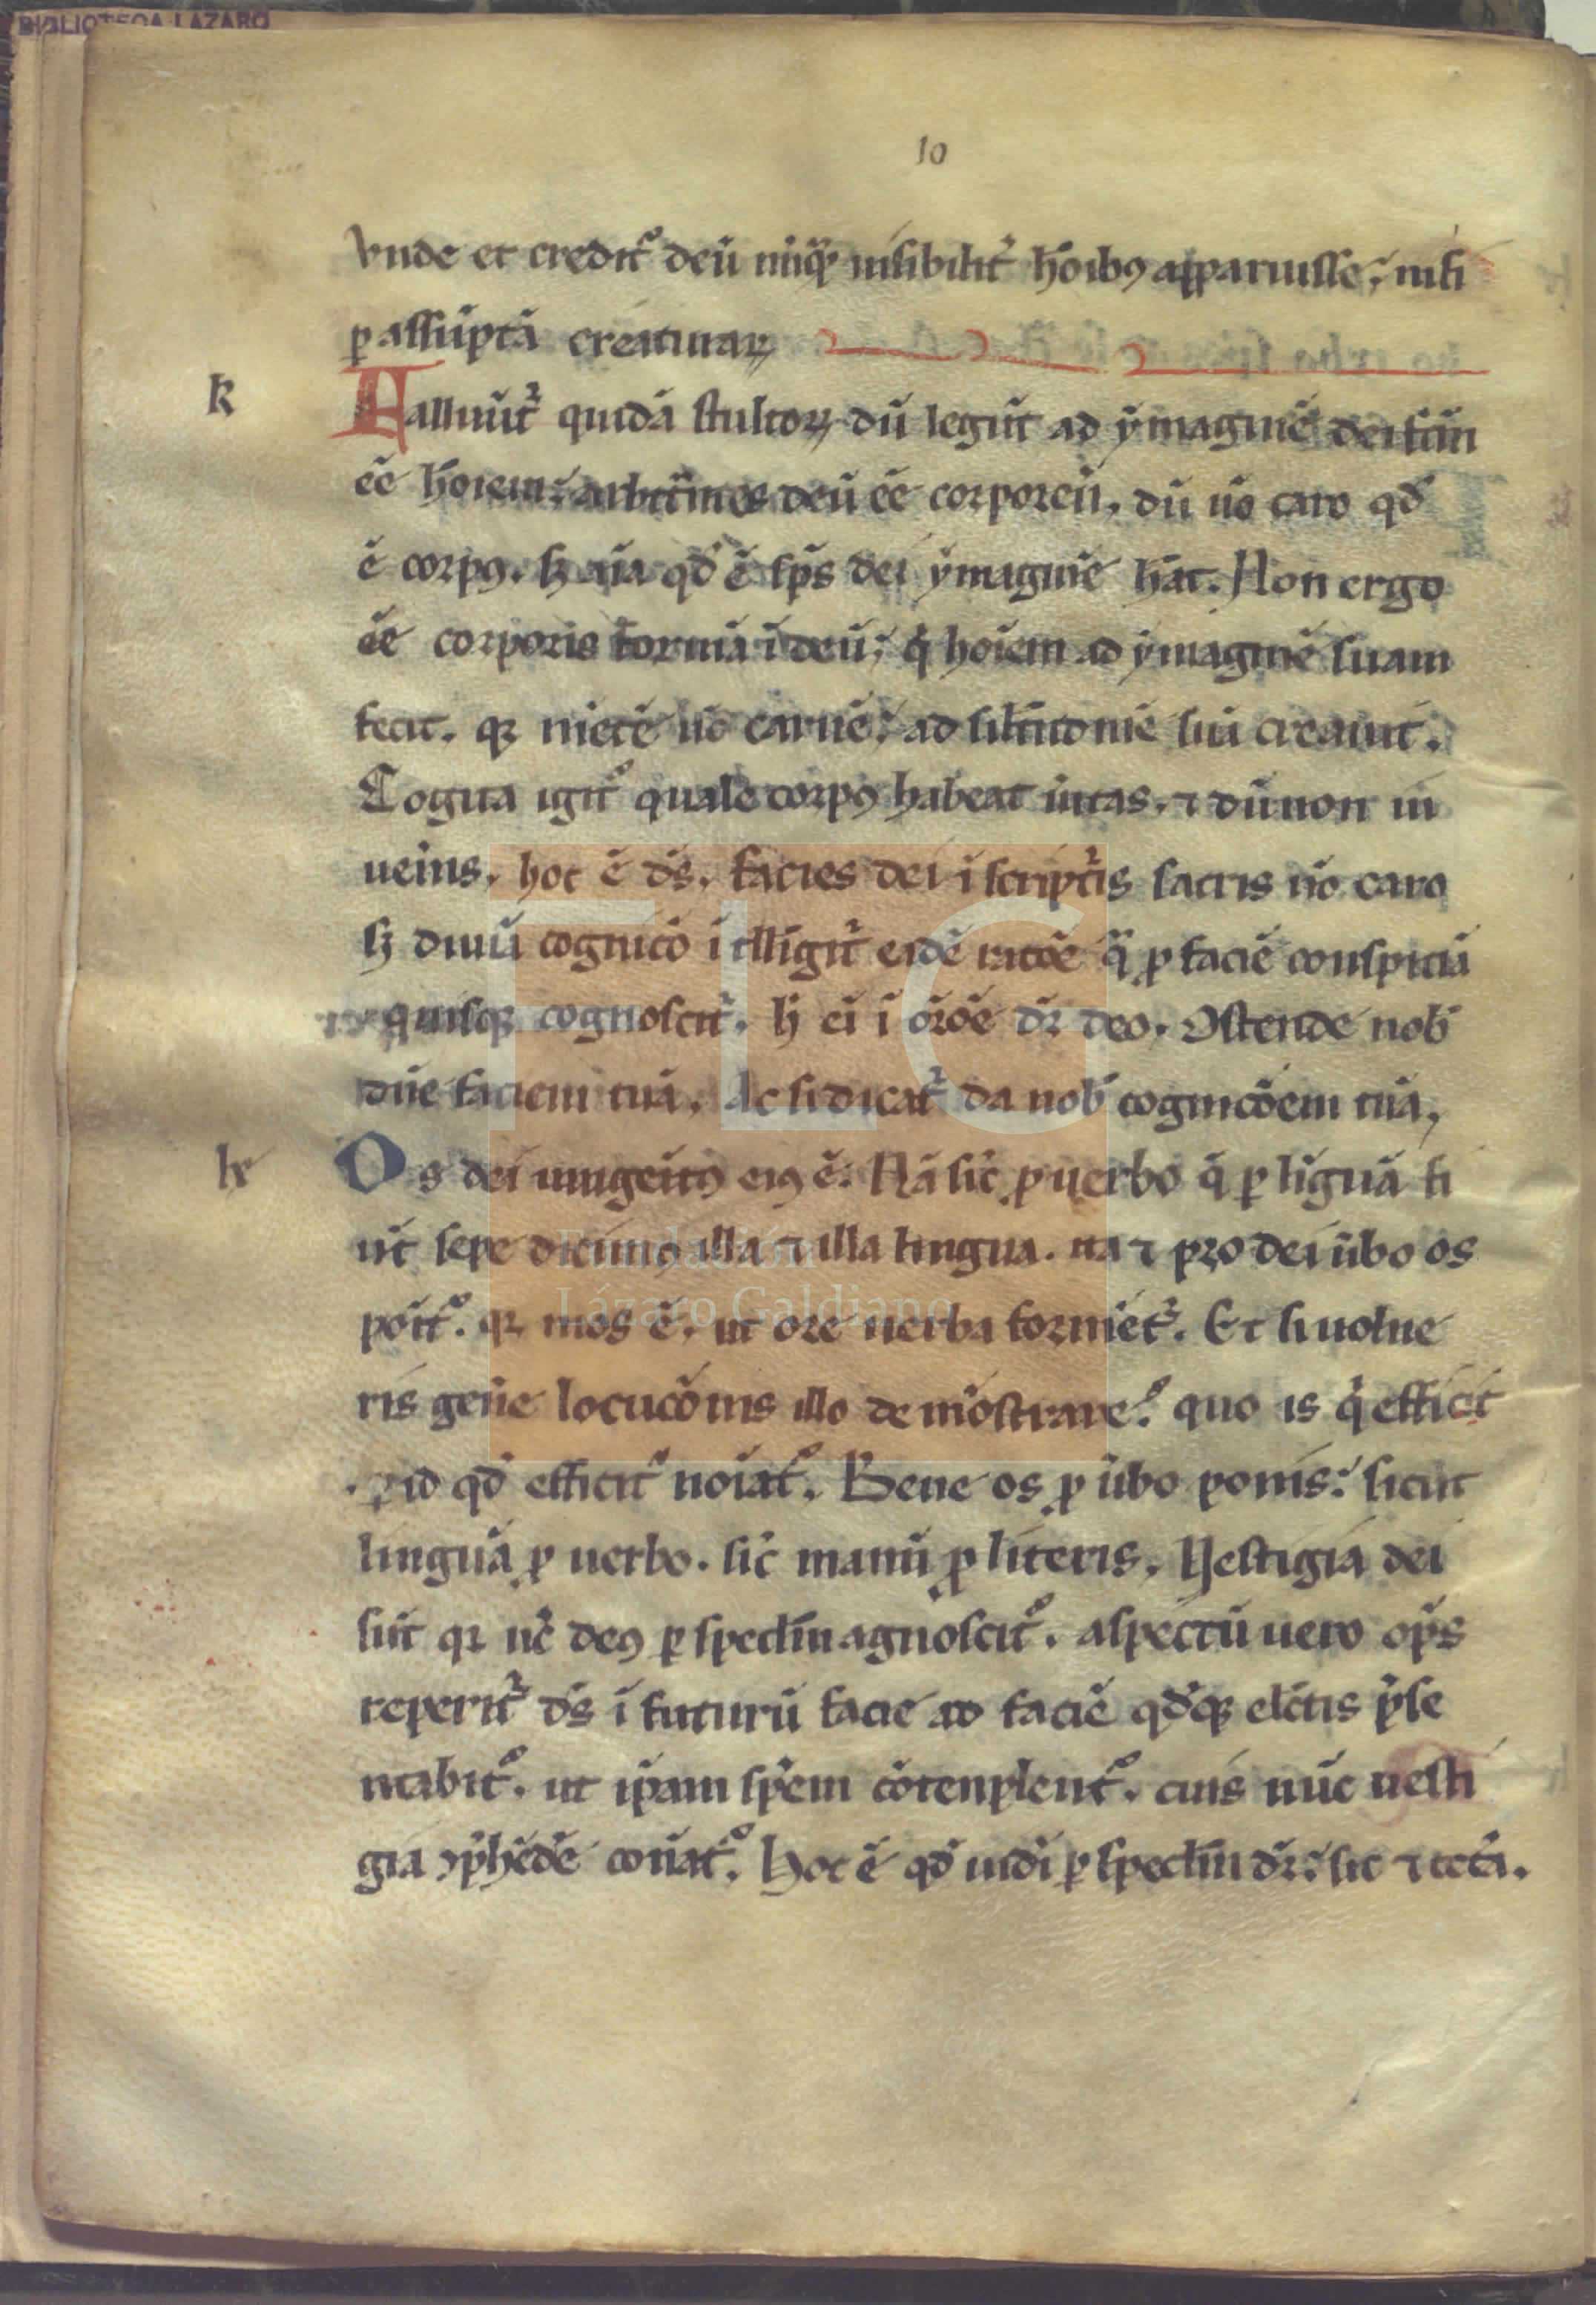 BIBLIOTECA LAZARO
10
Vnde et credit᷑ deū nūq̄ uisibilit᷑ hōibꝰ apparuisse; nisi
ꝑ assūptā creaturaꝝ
k
Falluūt᷑ quidā stultoꝝ dū legūt ad ymaginē dei fc̄m
eē hōiem; arbitrātes deū eē corporeū. dū nō caro qd̄
ē corpꝰ. sꝫ aīa qd̄ ē sp̄s dei ymaginē hāt. Non ergo
eē corporis formā ī deū; q̇ hoīem ad ymaginē suam
fecit. qꝛ mētē nō carnē; ad silitudinē suā creauit.
Cogita igit᷑ quale corpꝰ habeat ūitas. ⁊ dū non in
ueīris. hoc ē ds̄. facies dei ī script᷑is sacris nō caro
sꝫ diuīa cognicō ītlligit᷑ eadē racōe q̄ ꝑ faciē conspectā
quisqꝫ cognoscit᷑. h̄ eī ī orōe dr̄ deo. Ostende nob̄
dn̄e faciem tuā. Ac si dicat᷑ da nob̄ cognicōem tuā.
lx
Os dei unigeītꝰ eiꝰ ē. Nā sic̄ ꝓ uerbo q̄ ꝑ līguā fi
ūt sepe dicimꝰ illa ⁊ illa lingua. ita ⁊ pro dei ūbo os
pōit᷑. qꝛ mos ē. ut ore uerba formēt᷑. Et si uolue
ris gen̄e locucōnis illo demōstrare; quo is q̇ efficit
id qd̄ efficit᷑ noīat᷑. Bene os ꝓ ūbo ponis; sicut
linguā ꝓ uerbo. sic̄ manū ꝓ literis. Vestigia dei
sūt qꝛ nc̄ deꝰ ꝑ specl̄m agnoscit᷑. aspectū uero op̄s
reperit᷑ ds̄ ī futurū facie ad faciē qd̄qꝫ elc̄tis p̄se
ntabit᷑. ut ip̄am sp̄em cōtenplent᷑. cuiꝰ nūc uesti
gia ꝯp̄hēdē conat᷑. Hoc ē qd̄ uidi ꝑ specl̄m dr̄; sic ⁊ cet̄a.
FLG
Fundación
Lázaro Galdiano